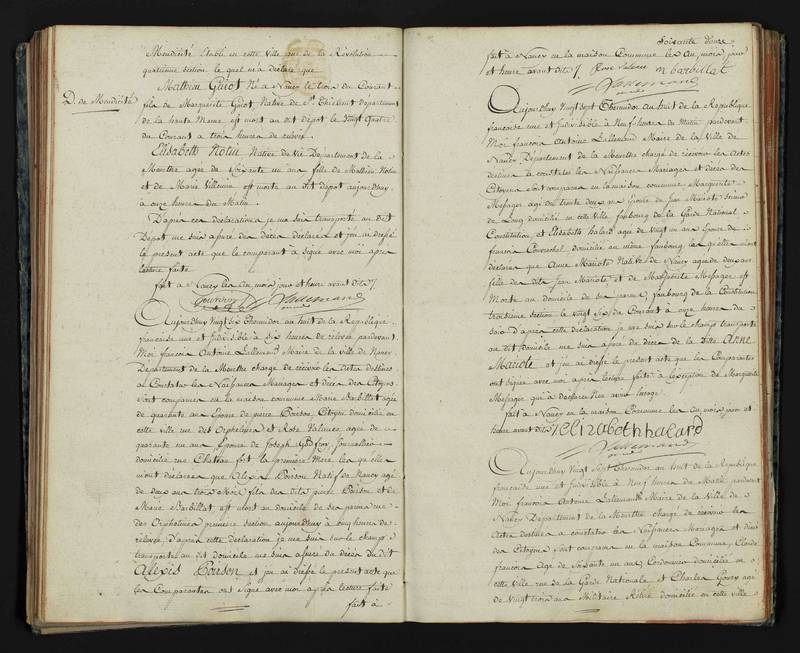 Mendicité établi en cette ville rue de la Révolution
quatrieme section lequel m'a déclaré que
Mathieu Guiot Né à Nancy le trois du Courant
D. de Mendicité
fils de Marguerite Guiot Native de St. département
de la haute Marne est mort au dit dépôt le Vingt quatre
du Courant à trois heures de relevé.
Elisabeth Notin Native de Vic Département de la
Meurthe agée de Soixante un ans fille de Mathieu Notin
et de Marie Villemin est morte au dit dépot aujourdhuy
à onze heures du Matin.
D'après ces déclarations je me suis transporté au dit
Dépot me suis assuré des décès déclarés et j'en ai dressé
le présent acte que le comparant à signé avec moi après
lecture faite
fait à Nancy les an, mois, jour et heure avant dits
Lallemand
Aujourdhuy Vingt six thermidor an huit de la République
francaise une et Indivisible à six heures de relevée pardevant
Moi francois Antoine Lallemand Maire de la ville de Nancy
Département de la Meurthe chargé de recevoir les Actes destinés
à Constater les Naissances Mariages et décès des Citoyens
Sont comparues en la maison commune Marie Barbillat agée
de quarante ans Epouse de pierre Poirson Citoyen domicilié en
cette ville rue des Orphelines et Rose Valance agée de
quarante un ans Epouse de Joseph Godfroy, journalier
domicilié rue Chateau fort la premiere Mere les qu'elles
m'ont déclarées que Alexis Poirson Natif de Nancy agé
de deux ans trois Mois fils des dits pierre Poirson et de
Marie Barbillat est mort au domicile de ses pere et mere rue
des Orphelines premiere section, aujourdhuy à onze heures de
relevée, d'après cette déclaration je me suis sur le champ
transporté au dit domicile me suis assuré du décès du dit
Alexis Poirson et j'en ai dressé le présent acte que
les Comparantes ont signé avec moi après lecture faite
fait à
Soixante douze
fait à Nancy en la maison Commune les An, mois, jour
et heure avant dits Rose Valance m barbillat
Lallemand
Aujourdhuy Vingt sept thermidor An huit de la République
francaise une et Indivisible à Neuf heures du Matin pardevant
Moi francois Antoine Lallemand Maire de la Ville de
Nancy Département de la Meurthe chargé de recevoir les Actes
destinés à constater les Naissances Mariages et décès des
Citoyens Sont comparues en la maison commune Marguerite
Mesager agée de trente deux ans Epouse de Jean Mariote
domicilié en cette Ville faubourg de la Garde National
Constitution, et Elisabeth halard agée de Vingt un ans Epouse de
francois domicilié au même faubourg les qu'elles m'ont
déclarées que Anne Mariote Native de Nancy agée de deux ans
fille des dits Jean Mariote et de Marguerite Mesager est
Morte au domicile de ses parens, faubourg de la Constitution
troisieme section le vingt six du Courant à onze heures du
soir d'après cette déclaration je me suis sur le champ transporté
au dit domicile me suis assuré du décès de la dite Anne
Mariote et j'en ai dressé le présent acte que les Comparantes
ont signé avec moi après lecture faite à l'exception de Marguerite
Mesager qui à déclarée
fait à Nancy en la maison Commune les An, mois jour et
heure avant dits elizabeth halard
Lallemand
Aujourdhuy Vingt Sept thermidor an huit de la République
francaise une et Indivisible à Neuf heures du Matin pardevant
Moi francois Antoine Lallemand Maire de la Ville de
Nancy Département de la Meurthe chargé de recevoir les
Actes destinés à constater les Naissances Mariages et décès
des Citoyens Sont comparus en la maison Commune, Claude
francois Agé de Soixante un ans Cordonnier domicilié en
cette ville rue de la Garde Nationale et Charles Goury agé
de Vingt trois ans Militaire Retiré domicilié en cette ville